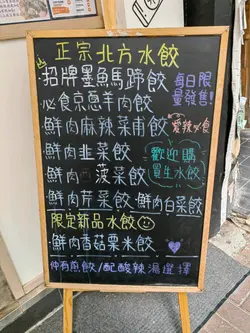 正宗北方水餃
招牌墨魚馬蹄餃
每日限量發售!
必食京蔥羊肉餃
鮮肉麻辣菜甫餃
愛辣必食
鮮肉韭菜餃
鮮肉菠菜餃
歡迎購買生水餃
鮮肉芹菜餃·鮮肉白菜餃
限定新品水餃
鮮肉香菇粟米餃
仲有煎餃/配酸辣湯選擇